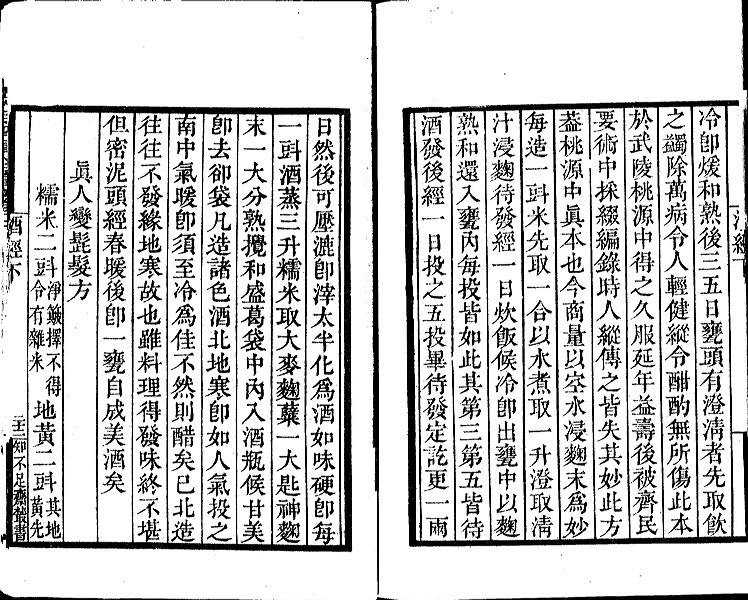 冷卽煖和熟後三五日甕頭有澄清者先取飲
之蠲除萬病令人輕健縱令酣酌無所傷此本
於武陵桃源中得之久服延年益壽後被齊民
要術中採綴編錄時人縱傳之皆失其妙此方
葢桃源中眞本也今商量以空水浸麴末爲妙
每造一㪷米先取一合以水煮取一升澄取清
汁浸麴待發經一日炊飯候冷卽出甕中以麴
熟和還入甕內每投皆如此其第三第五皆待
酒發後經一日投之五投畢待發定訖更一兩
日然後可壓漉卽滓太半化爲酒如味硬卽每
一㪷酒蒸三升糯米取大麥麴糵一大匙神麴
末一大分熟攪和盛葛袋中內入酒瓶候甘美
卽去卻袋凡造諸色酒北地寒卽如人氣投之
南中氣暖卽須至冷爲佳不然則醋矣已北造
往往不發緣地寒故也雖料理得發味終不堪
但密泥頭經春暖後卽一甕自成美酒矣
眞人變髭髮方
糯米二㪷淨簸擇不得令有雜米地黃二㪷其地黃先
酒經下
知不足齋叢書